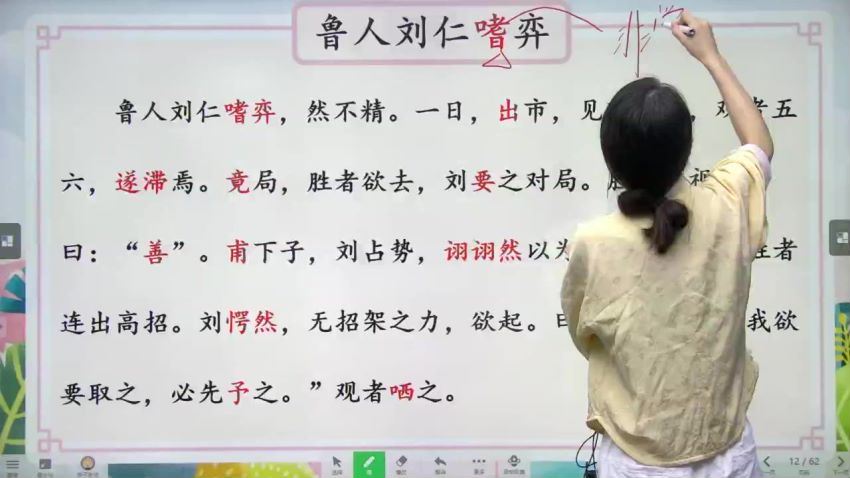 鲁人刘仁嗜弈
非常
鲁人刘仁嗜弈，然不精。一日，出市，见 观者五
六，遂滞焉。竟局，胜者欲去，刘要之对局。
曰：“善”。甫下子，刘占势，诩诩然以为 者
连出高招。刘愕然，无招架之力，欲起。曰 我欲
要取之，必先予之。”观者哂之。
选择 笔 更多
12/62